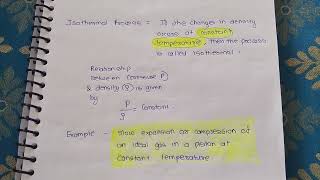 Isothermal Process = If the changes in density
occurs at constant
temperature, then the process
is called Isothermal.
Relationship
between pressure P
& density (ρ) is given
by P/ρ = Constant.
Example - Slow expansion or compression of
an ideal gas in a piston at
constant temperature